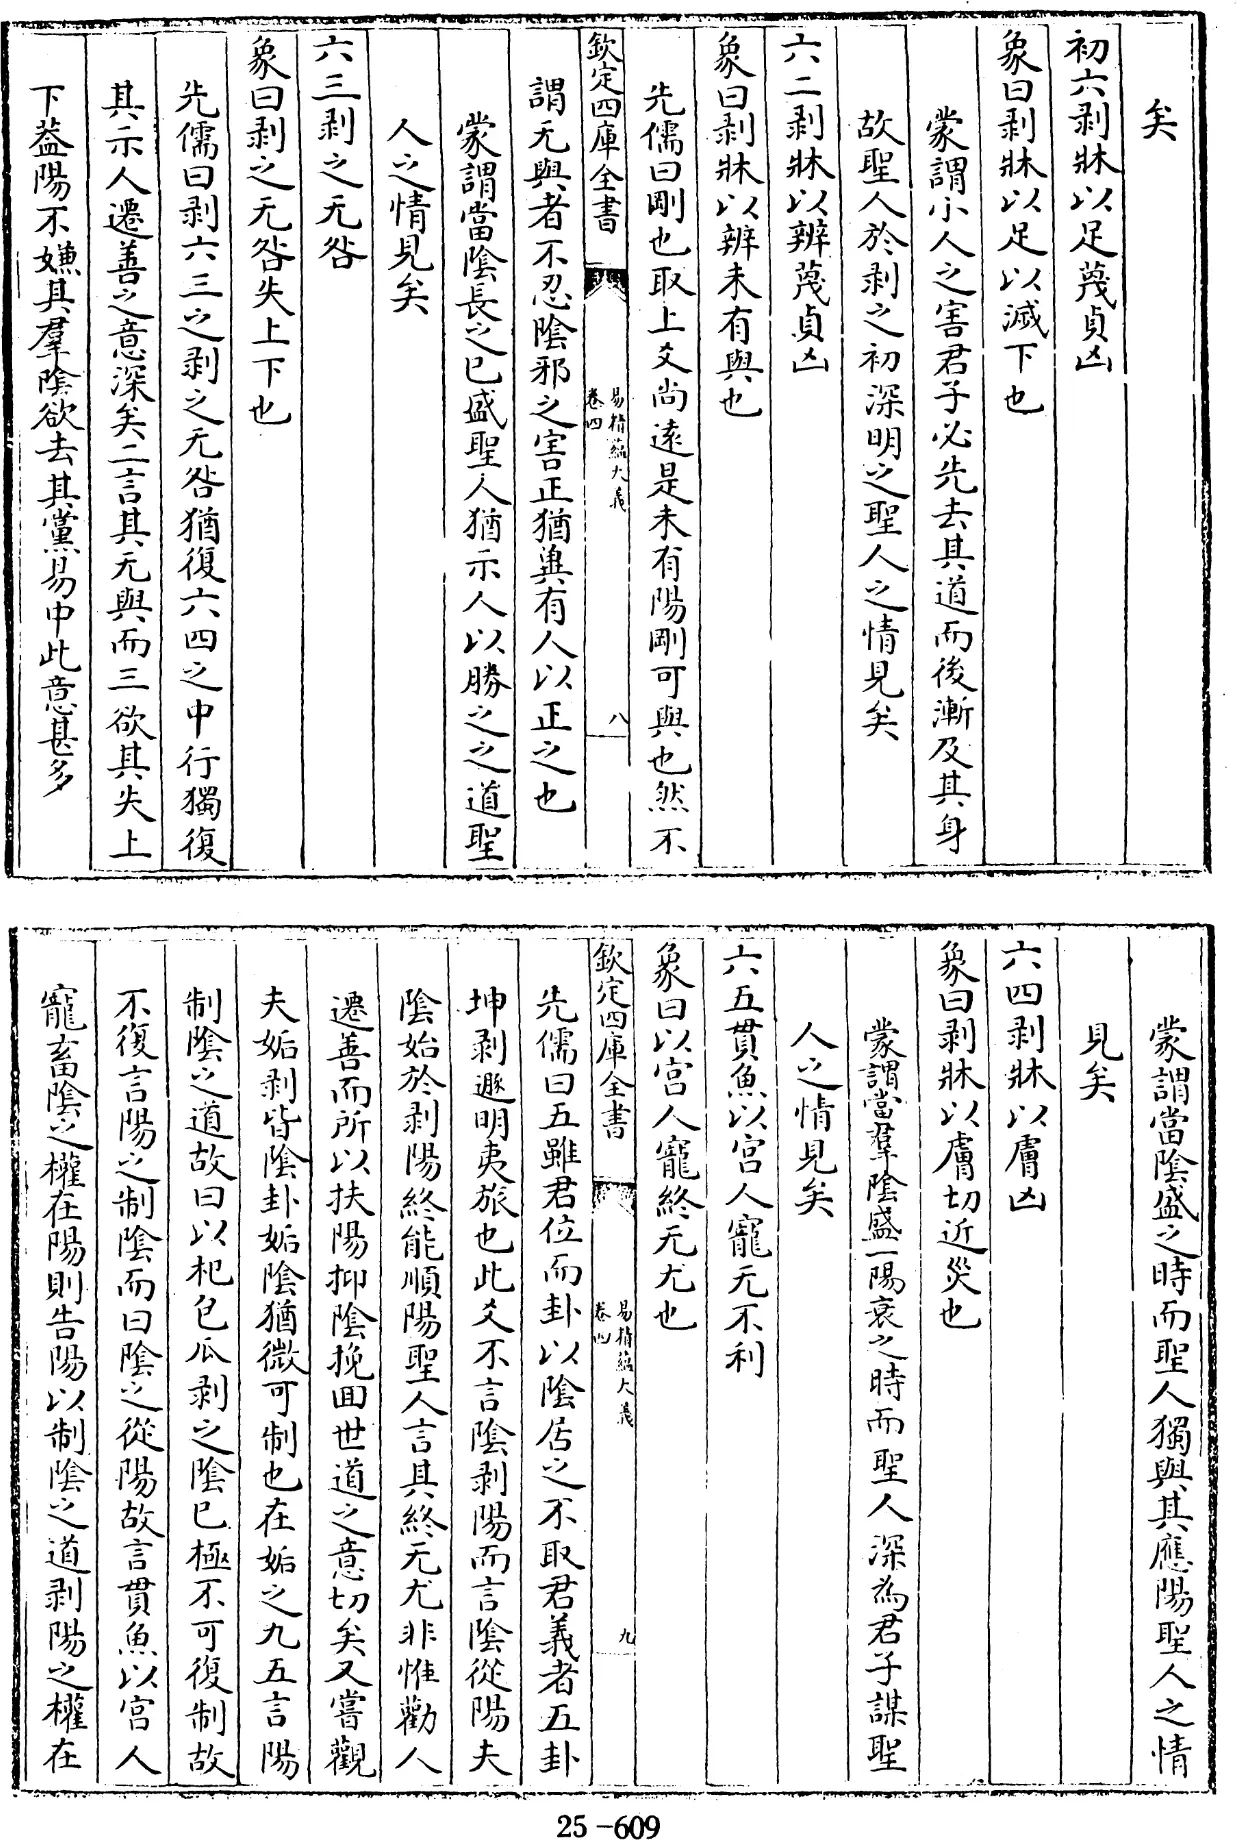 矣
初六剥牀以足蔑貞凶
象曰剥牀以足以滅下也
蒙謂小人之害君子必先去其道而後漸及其身
故聖人於剥之初深明之聖人之情見矣
六二剥牀以辨蔑貞凶
象曰剥牀以辨未有與也
先儒曰剛也取上爻尚遠是未有陽剛可與也然不
欽定四庫全書
易精蘊大義
卷四
八
謂无與者不忍陰邪之害正猶兾有人以正之也
蒙謂當陰長之已盛聖人猶示人以勝之之道聖
人之情見矣
六三剥之无咎
象曰剥之无咎失上下也
先儒曰剥六三之剥之无咎猶復六四之中行獨復
其示人遷善之意深矣二言其无與而三欲其失上
下葢陽不嫌其羣陰欲去其黨易中此意甚多
蒙謂當陰盛之時而聖人獨與其應陽聖人之情
見矣
六四剥牀以膚凶
象曰剥牀以膚切近災也
蒙謂當羣陰盛一陽衰之時而聖人深為君子謀聖
人之情見矣
六五貫魚以宮人寵无不利
象曰以宮人寵終无尤也
欽定四庫全書
易精蘊大義
卷四
九
先儒曰五雖君位而卦以陰居之不取君義者五卦
坤剥遯明夷旅也此爻不言陰剥陽而言陰從陽夫
陰始於剥陽終能順陽聖人言其終无尤非惟勸人
遷善而所以扶陽抑陰挽回世道之意切矣又嘗觀
夫姤剥皆陰卦姤陰猶微可制也在姤之九五言陽
制陰之道故曰以杞包瓜剥之陰已極不可復制故
不復言陽之制陰而曰陰之從陽故言貫魚以宮人
寵畜陰之權在陽則告陽以制陰之道剥陽之權在
25-609